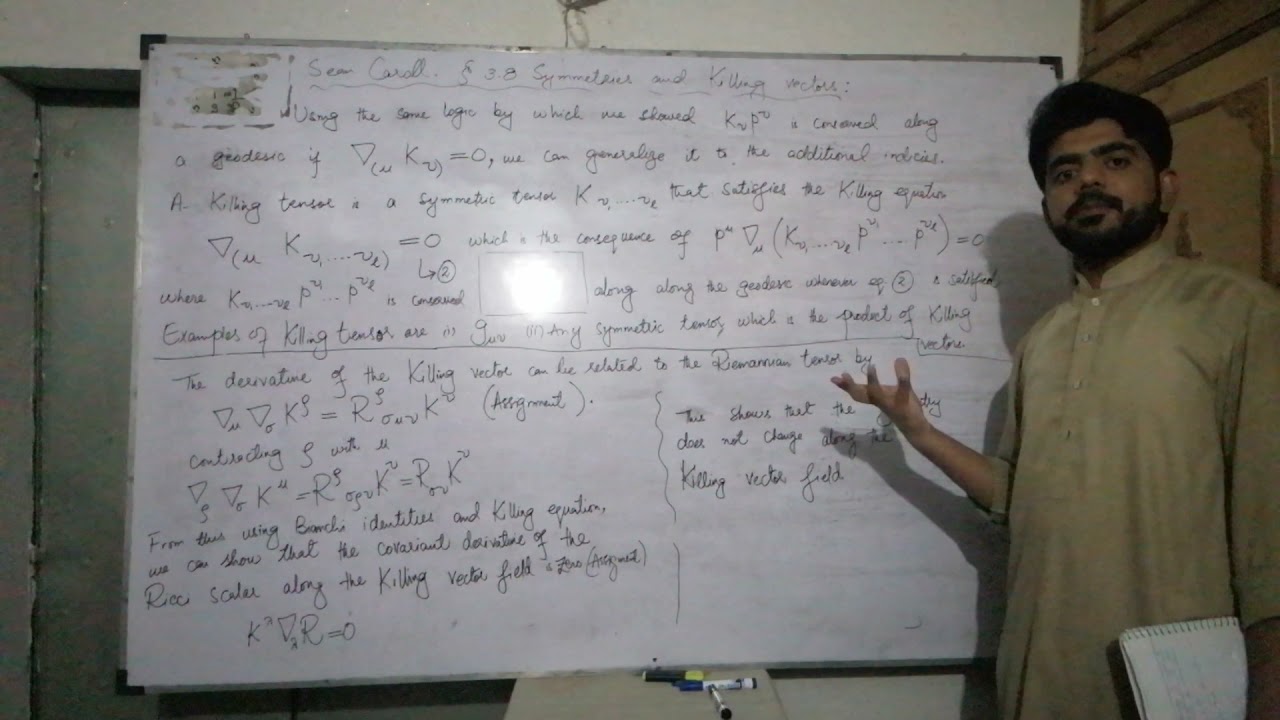 Sean Caroll. § 3.8 Symmetries and Killing vectors:
Using the same logic by which we showed K_ν P^ν is conserved along
a geodesic if ∇_(μ K_ν) = 0, we can generalize it to the additional indicies.
A Killing tensor is a symmetric tensor K_ν₁....ν_ℓ that satisfies the Killing equation
∇_(μ K_ν₁....ν_ℓ) = 0 which is the consequence of P^μ ∇_μ (K_ν₁....ν_ℓ P^ν₁ .... P^ν_ℓ) = 0
↳②
where K_ν₁....ν_ℓ P^ν₁ ... P^ν_ℓ is conserved along along the geodesic whenever eq ② is satisfied
Examples of Killing tensor are (i) g_μν (ii) Any symmetric tensor, which is the product of Killing
vectors
The derivative of the Killing vector can be related to the Riemannian tensor by
∇_μ ∇_σ K^ρ = R^ρ_σμν K^ν (Assignment).
contracting ρ with μ
∇_ρ ∇_σ K^μ = R^ρ_σρν K^ν = R_σν K^ν
From this using Bianchi identities and Killing equation,
we can show that the covariant derivative of the
Ricci scalar along the Killing vector field is Zero (Assignment)
K^λ ∇_λ R = 0
This shows that the
does not change along the
Killing vector field